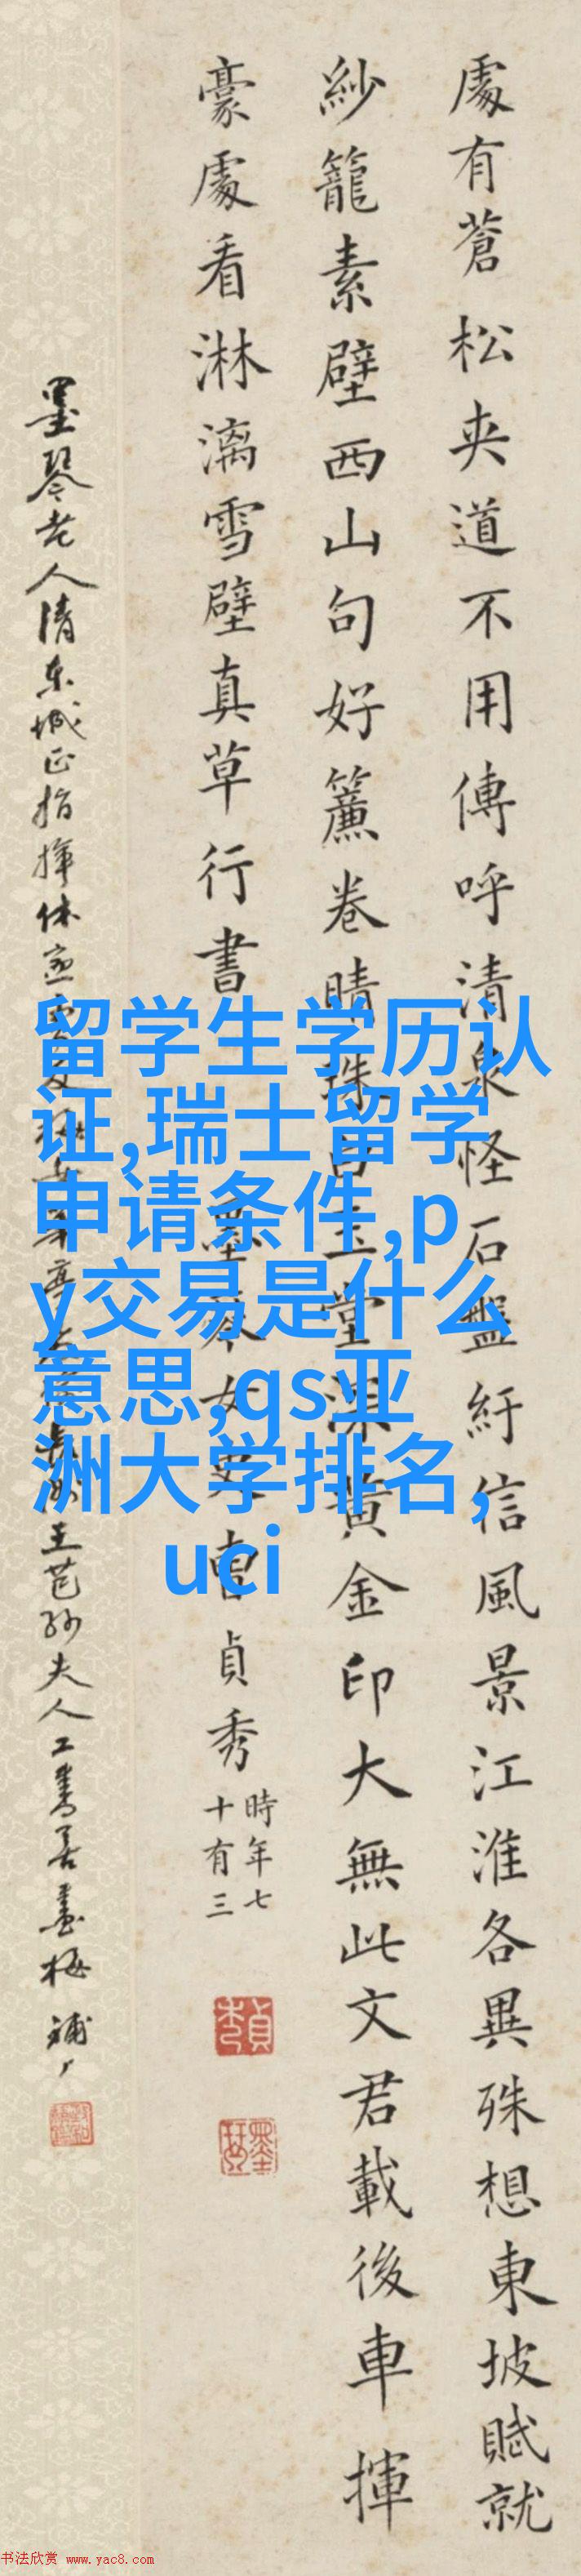 處有蒼松夾道不用傳呼清泉怪石盤紆信風景江淮各異殊想東坡賦就
紗籠素壁西山句好簾卷晴珠白玉堂深黃金印大無此文君載後車揮
豪處看淋漓雪壁真草行書
墨琴女史曹貞秀
時年七
十有三
貞秀
墨琴
墨琴老人清東城正指揮
王芑孫夫人工書善畫梅
留学生学历认
证,瑞士留学
申请条件,p
y交易是什么
意思,qs亚
洲大学排名,
uci
书法欣赏 www.yac8.com